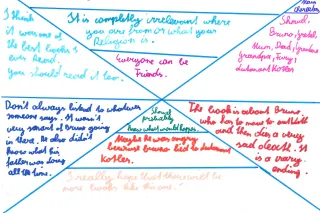 I think
it was one of
the best books I
ever Read.
you should read it too.
It is completly irrelevant where
you are from or what your
Religion is.
Everyone can be
Friends.
Main
Characters
Shmuel,
Bruno, Gretel,
Mum, Dad, Grandma
Grandpa,
Lieutenant
Kotler.
Don't always listend to whatever
someone says. It wasn't
very smart of Bruno going
in there. He also didn't
know what his
father was doing
all the time.
Shmuel
probably
knew what would happen.
Maybe He was angry
because Bruno lied to Lieutenant
Kotler.
The book is about Bruno,
who has to move to
and then dies a very
sad death. It
is a
ending.
I really hope that there will be
more books like this one.